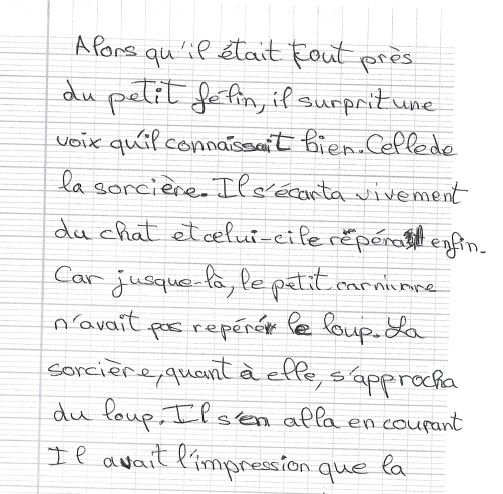 Alors qu'il était tout près
du petit félin, il surprit une
voix qu'il connaissait bien. Celle de
la sorcière. Il s'écarta vivement
du chat et celui-ci le répéra enfin.
Car jusque-là, le petit carnivore
n'avait pas repéré le loup. La
sorcière, quant à elle, s'approcha
du loup. Il s'en alla en courant
Il avait l'impression que la